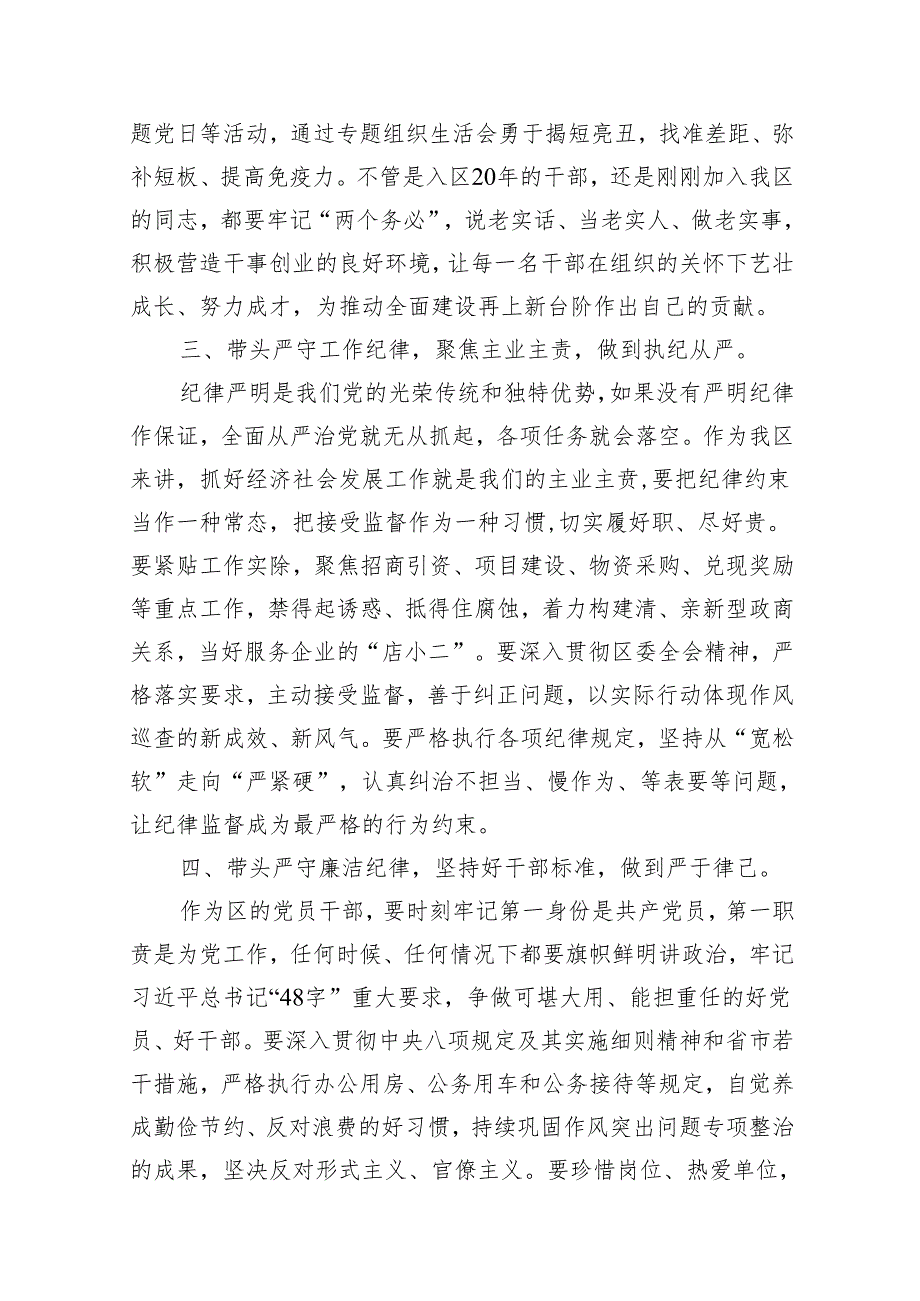 题党日等活动，通过专题组织生活会勇于揭短亮丑，找准差距、弥
补短板、提高免疫力。不管是入区20年的干部，还是刚刚加入我区
的同志，都要牢记“两个务必”，说老实话、当老实人、做老实事，
积极营造干事创业的良好环境，让每一名干部在组织的关怀下艺壮
成长、努力成才，为推动全面建设再上新台阶作出自己的贡献。
三、带头严守工作纪律，聚焦主业主责，做到执纪从严。
纪律严明是我们党的光荣传统和独特优势,如果没有严明纪律
作保证，全面从严治党就无从抓起，各项任务就会落空。作为我区
来讲，抓好经济社会发展工作就是我们的主业主贲,要把纪律约束
当作一种常态，把接受监督作为一种习惯,切实履好职、尽好贵。
要紧贴工作实除，聚焦招商引资、项目建设、物资采购、兑现奖励
等重点工作，禁得起诱惑、抵得住腐蚀，着力构建清、亲新型政商
关系，当好服务企业的“店小二”。要深入贯彻区委全会精神，严
格落实要求，主动接受监督，善于纠正问题，以实际行动体现作风
巡查的新成效、新风气。要严格执行各项纪律规定，坚持从“宽松
软”走向“严紧硬”，认真纠治不担当、慢作为、等表要等问题，
让纪律监督成为最严格的行为约束。
四、带头严守廉洁纪律，坚持好干部标准，做到严于律己。
作为区的党员干部，要时刻牢记第一身份是共产党员，第一职
贲是为党工作，任何时候、任何情况下都要旗帜鲜明讲政治，牢记
习近平总书记“48字”重大要求，争做可堪大用、能担重任的好党
员、好干部。要深入贯彻中央八项规定及其实施细则精神和省市若
干措施，严格执行办公用房、公务用车和公务接待等规定，自觉养
成勤俭节约、反对浪费的好习惯，持续巩固作风突出问题专项整治
的成果，坚决反对形式主义、官僚主义。要珍惜岗位、热爱单位，